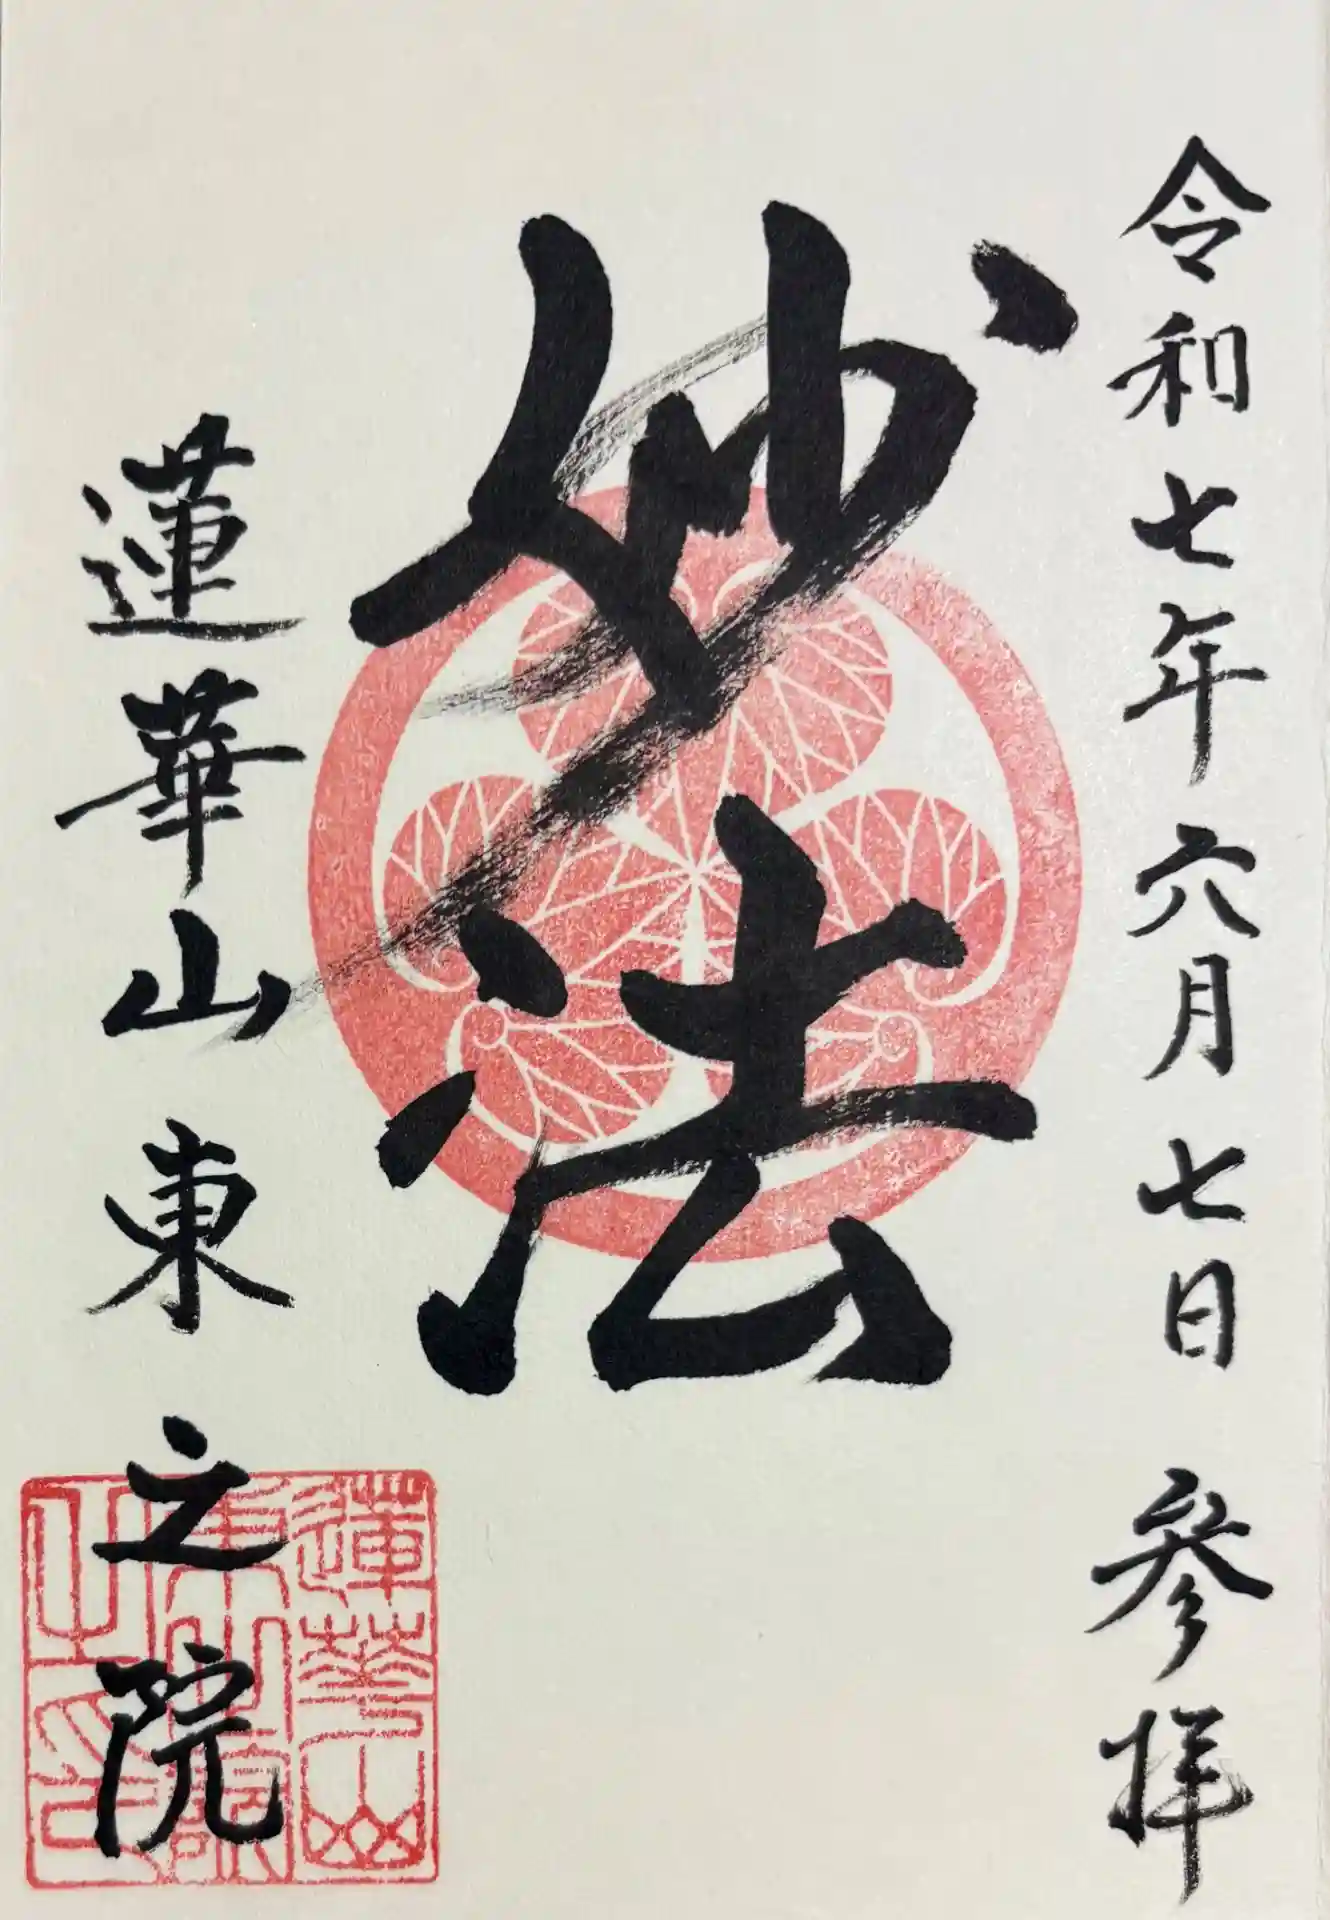 令和七年六月七日 参拝
妙法
蓮華山東之院
蓮華山